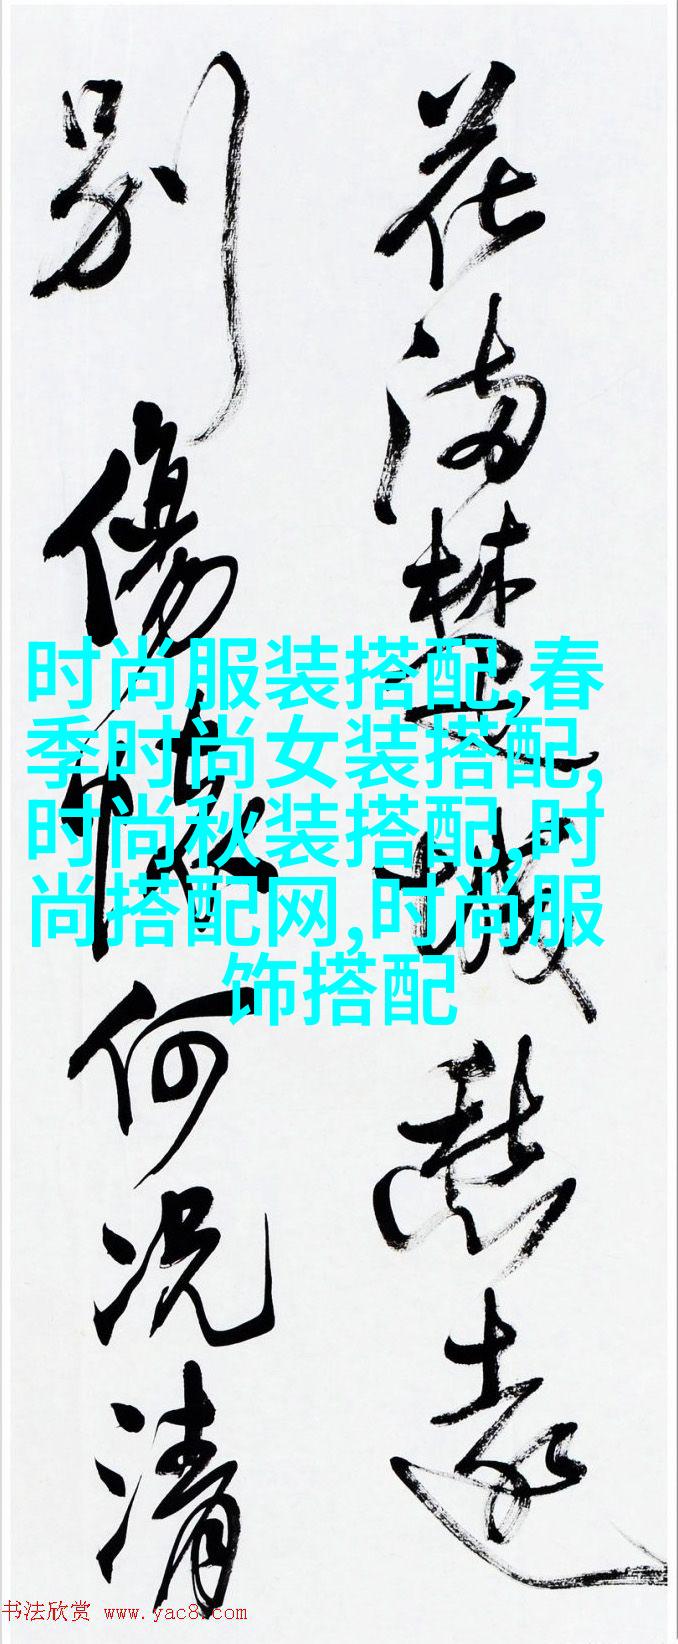 花滿楚城愁遠
別傷懷何況清
时尚服装搭配,春
季时尚女装搭配,
时尚秋装搭配,时
尚搭配网,时尚服
饰搭配
书法欣赏 www.yac8.com